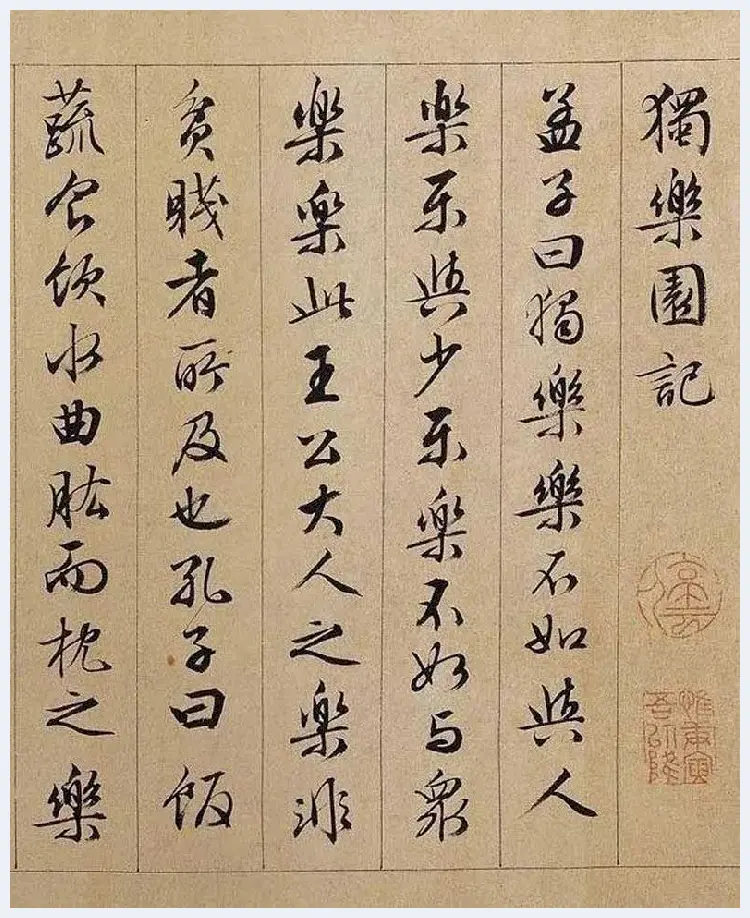 獨樂園記
孟子曰獨樂樂不如與人
樂樂與少樂樂不如与眾
樂樂此王公大人之樂非
貧賤者所及也孔子曰飯
蔬食飲水曲肱而枕之樂